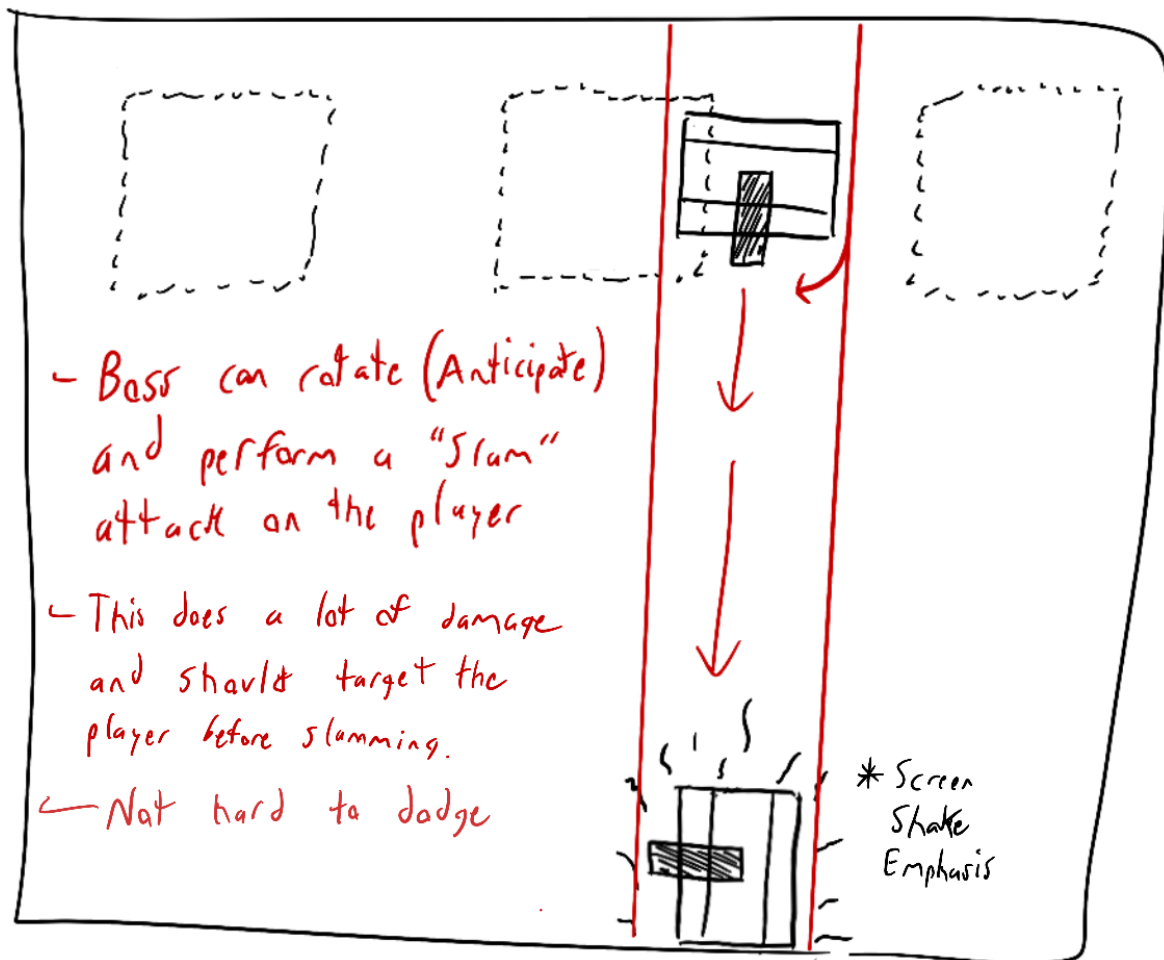 - Boss can rotate (Anticipate)
and perform a "Slam"
attack on the player
- This does a lot of damage
and should target the
player before slamming.
- Not hard to dodge
* Screen
Shake
Emphasis